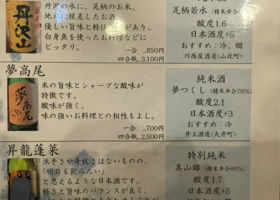 丹沢の水に、足柄のお米、
地元に根差したお酒。
優しい旨味と軽快さがあり、
白身魚を使ったお料理などに
ピッタリ。
一合 …850円
四合瓶…3,100円
足柄若水
酸度1.6
日本酒度+5
おすすめ：冷、燗
川西屋酒造(山北町)
夢高尾
米の旨味とシャープな酸味が
特徴です。
酸味が強く、
味の強いお料理との相性もよし。
一合 …700円
四合瓶 2,500円
純米酒
夢つくし(精米歩合70%)
酸度2.1
日本酒度+3
おすすめ：冷
井上酒造(大井町)
昇龍蓬莱
派手さや奇抜さはないものの、
「明日も飲みたい」
と思えるような日本酒です。
軽さと旨味のバランスが良く、
特別純米
美山錦
酸度1.7
日本酒度+5